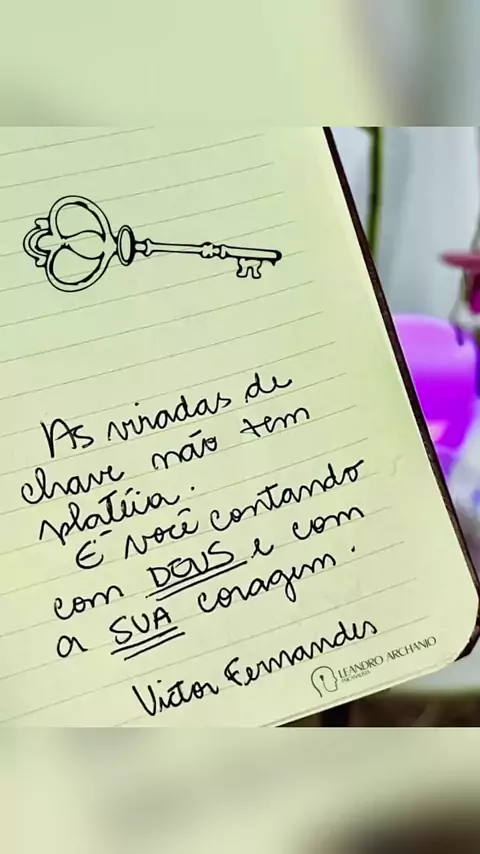 As viradas de
chave não tem
platéia.
É você contando
com DEUS e com
a SUA coragem.
Victor Fernandes
LEANDRO ARCHANJO
PSICANALISTA